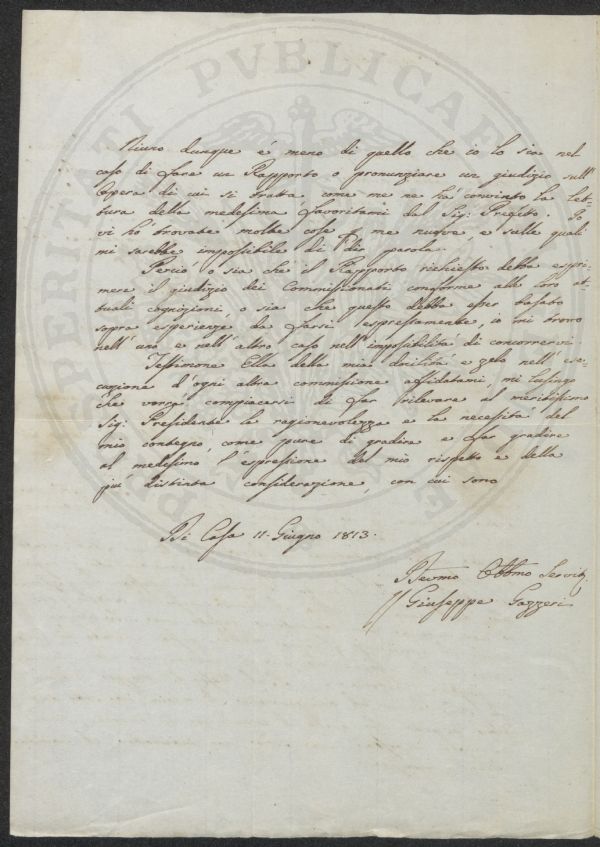 Niuno dunque è meno di quello che io lo sia nel
caso di fare un Rapporto o pronunziare un giudizio sull'
Opera di cui si tratta, come me ne ha convinto la let-
tura della medesima favoritami dal Sig: Pregito. Io
vi ho trovate molte cose p me nuove e sulle quali
mi sarebbe impossibile di dir parola.
Perciò o sia che il Rapporto richiesto debba espri-
mere il giudizio dei Commissionati conforme alle loro at-
tuali cognizioni, o sia che questo debba esser basato
sopra esperienze da farsi espressamente, io mi trovo
nell'uno e nell'altro caso nell'impossibilità di concorrervi.
Testimone Ella della mia docilità e zelo nell'ese-
cuzione d'ogni altra commissione affidatami, mi lusingo
che vorrà compiacersi di far rilevare al meritissimo
Sig: Presidente la ragionevolezza e la necessità del
mio contegno, come pure di gradire e far gradire
al medesimo l'espressione del mio rispetto e della
più distinta considerazione, con cui sono
Di Casa 11. Giugno 1813.
Devmo Obbmo Servit
Giuseppe Gazzeri
PROSPERITATI PVBLICAE